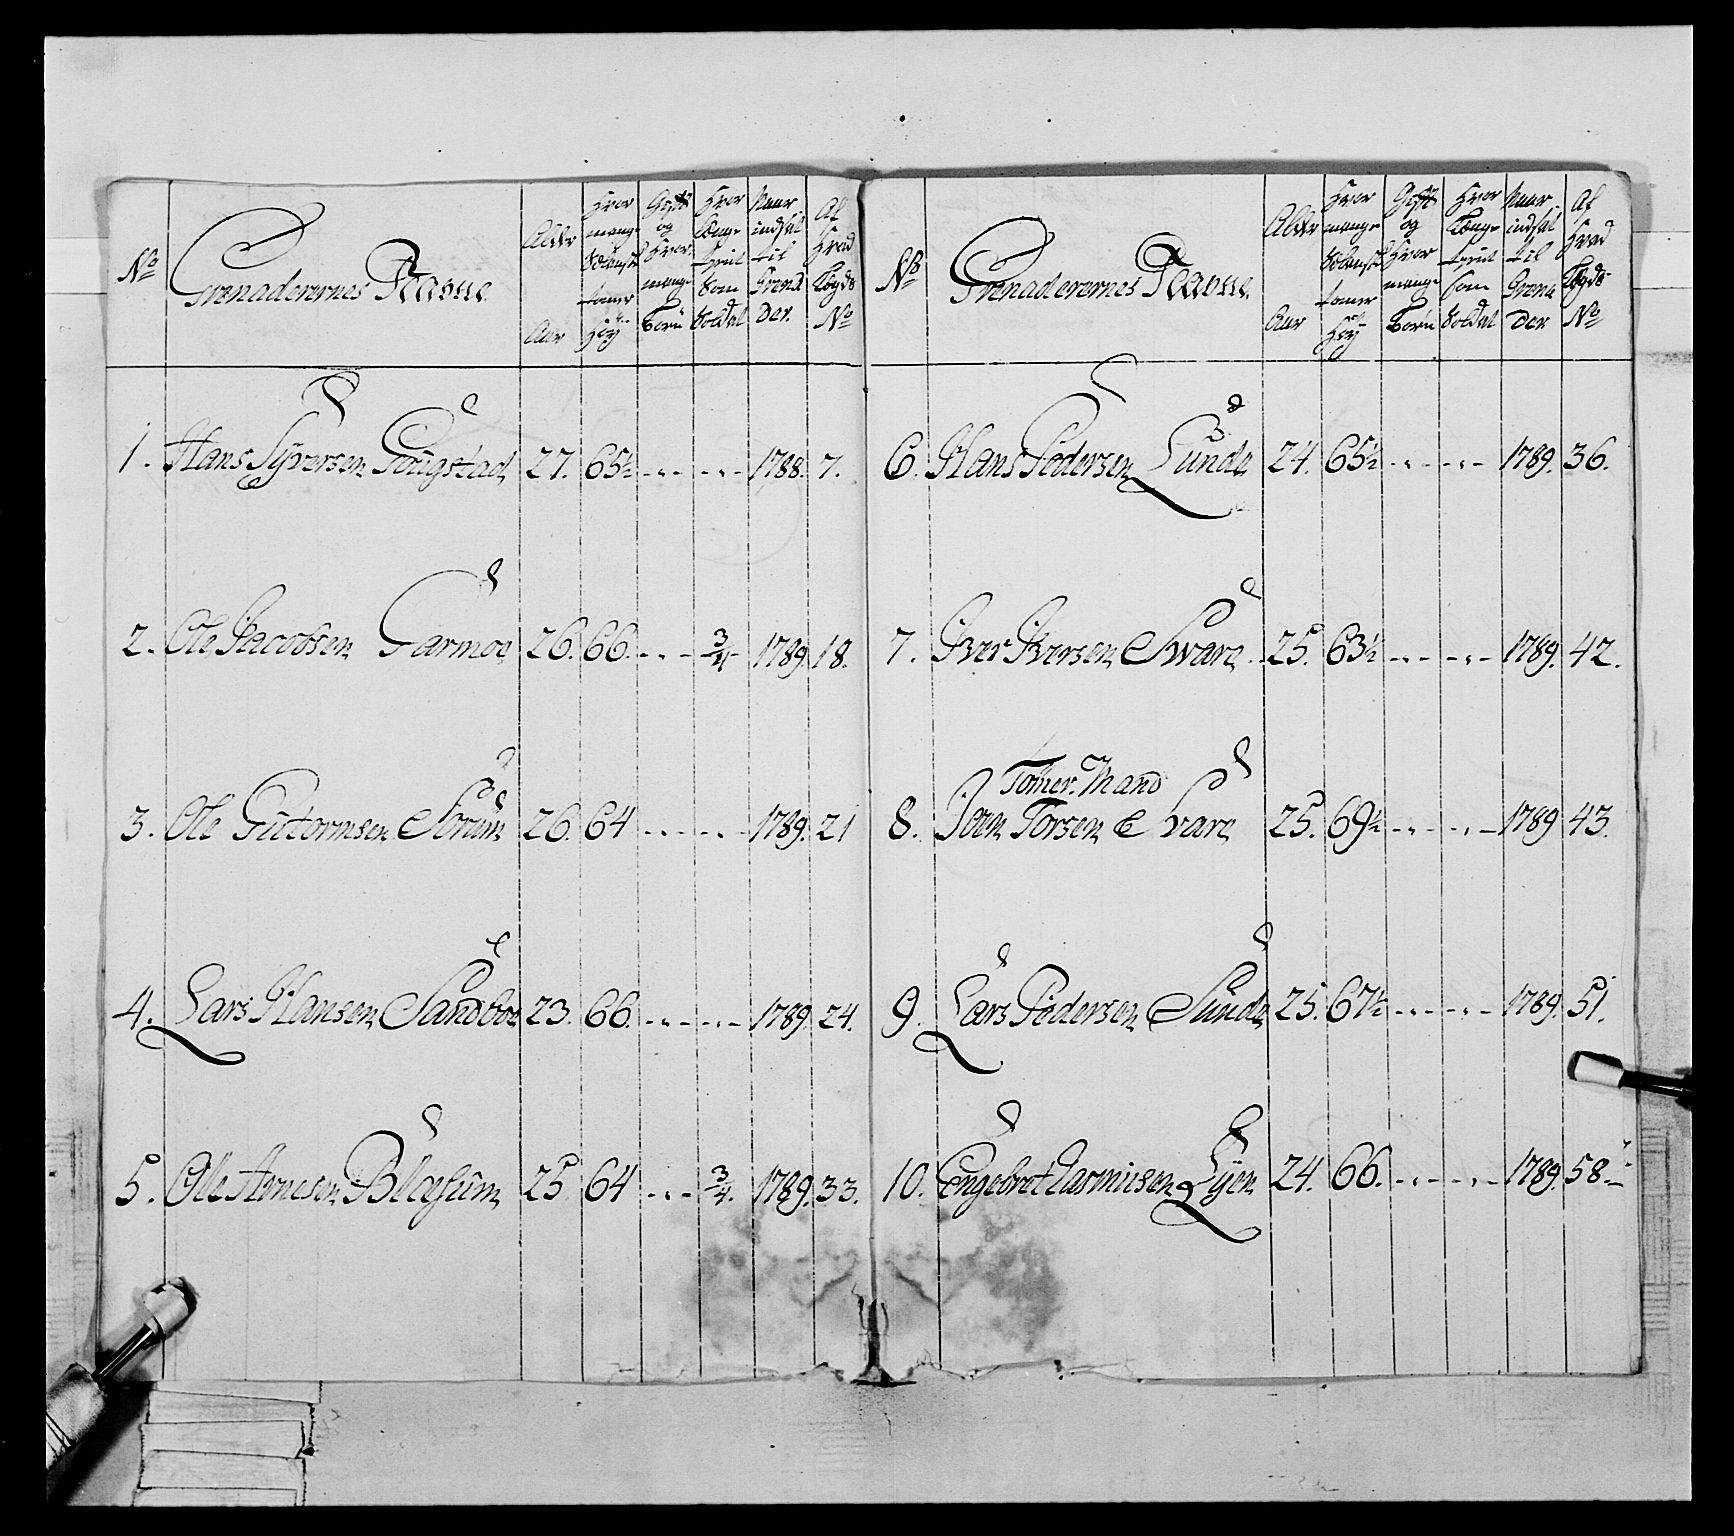 No
Grenaderernes Navne.
Alder
Aar
Hvor
mange
tomer
Høy
Gift
og
Hvor
mange
Børn
Hvor
Længe
tient
som
Soldat
Naar
indsat
til
Grena
der.
Af
Hvad
Lægds
No
1. Hans Syversen 27. 65½ 1788. 7.
2. Ole Jacobsen Garmoe 26. 66. ¾ 1789. 18.
3. Ole Gutormsen Sorum 26. 64 1789. 21
4. Lars Hansen Sandboe 23. 66. 1789. 24.
5. Ole Arnesen Blæssum 25 64 ¾. 1789. 33.
No
Grenaderernes Navne.
Alder
Aar
Hvor
mange
tomer
Høy
Gift
og
Hvor
mange
Børn
Hvor
Længe
tient
som
Soldat
Naar
indsat
til
Grena
der
Af
Hvad
Lægds
No
6. Hans Pedersen Sunde 24. 65½ 1789. 36.
7. Iver Iversen Svare 25. 63½ 1789. 42.
Tømer Mand
8. Joen Torsen Svare 25. 69½ 1789 43.
9. Lars Pedersen Sunde 25. 67½ 1789. 51.
10. Engebret Rasmusen Lyen 24. 66. 1789. 58